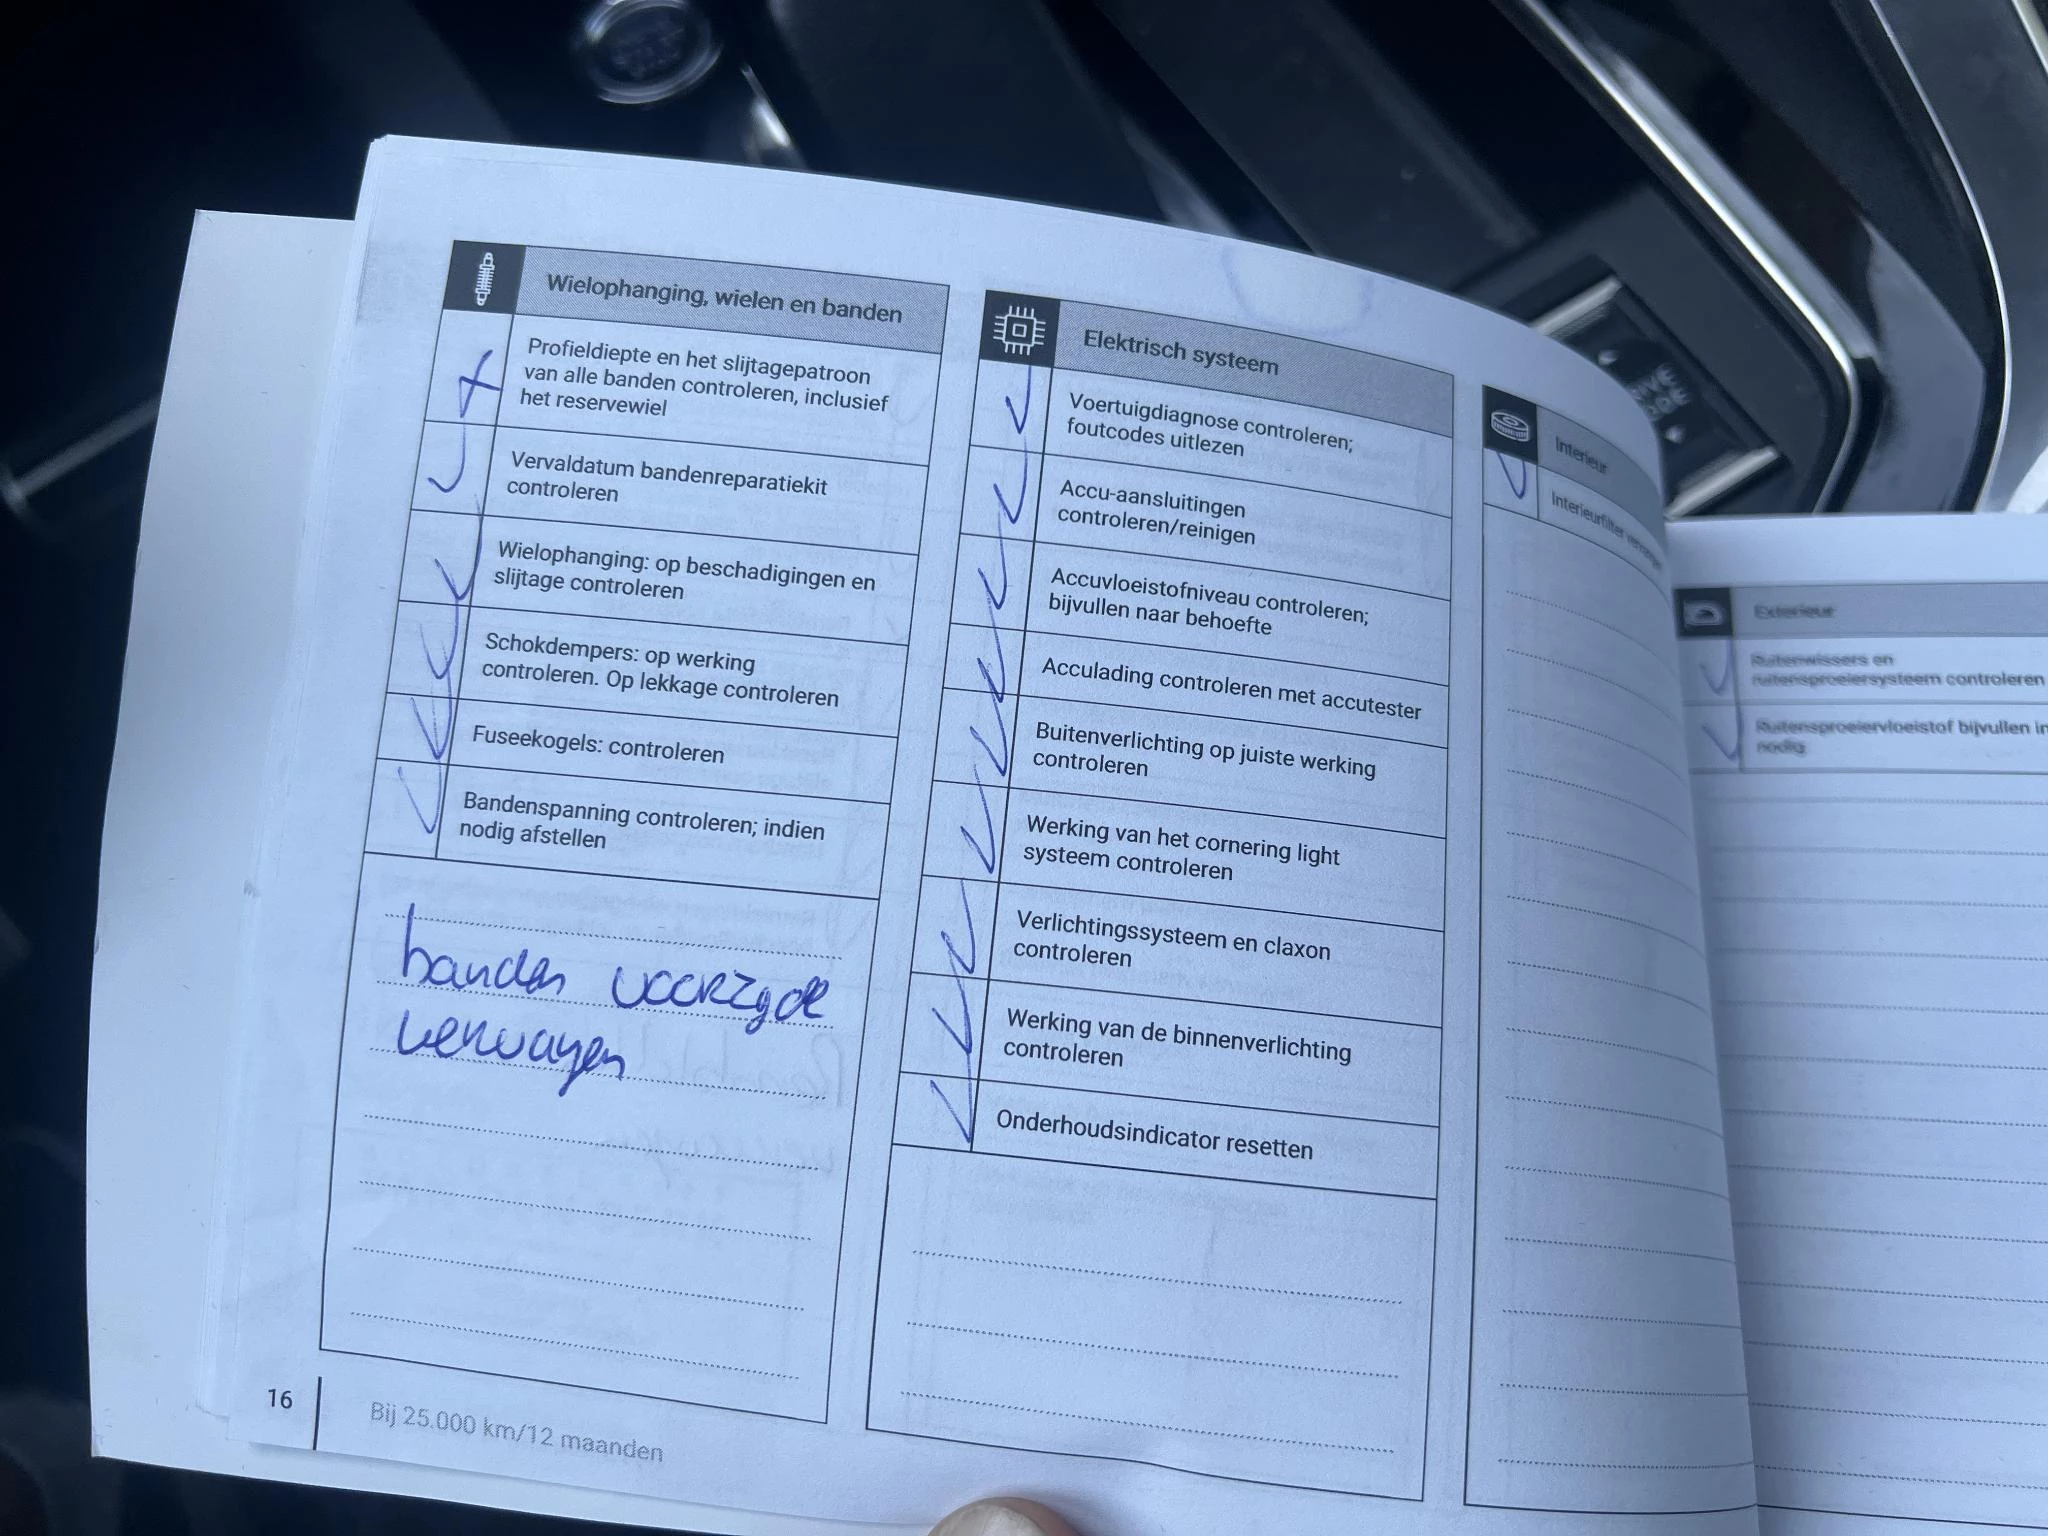 Wielophanging, wielen en banden
Profieldiepte en het slijtagepatroon
van alle banden controleren, inclusief
het reservewiel
Vervaldatum bandenreparatiekit
controleren
Wielophanging: op beschadigingen en
slijtage controleren
Schokdempers: op werking
controleren. Op lekkage controleren
Fuseekogels: controleren
Bandenspanning controleren; indien
nodig afstellen
banden voorzyde
vervangen
16
Bij 25.000 km/12 maanden
Elektrisch systeem
Voertuigdiagnose controleren;
foutcodes uitlezen
Accu-aansluitingen
controleren/reinigen
Accuvloeistofniveau controleren;
bijvullen naar behoefte
Acculading controleren met accutester
Buitenverlichting op juiste werking
controleren
Werking van het cornering light
systeem controleren
Verlichtingssysteem en claxon
controleren
Werking van de binnenverlichting
controleren
Onderhoudsindicator resetten
Interieur
Interieurfilter
Exterieur
Ruitenwissers en
ruitensproeiersysteem controleren
Ruitensproeiervloeistof bijvullen
nodig